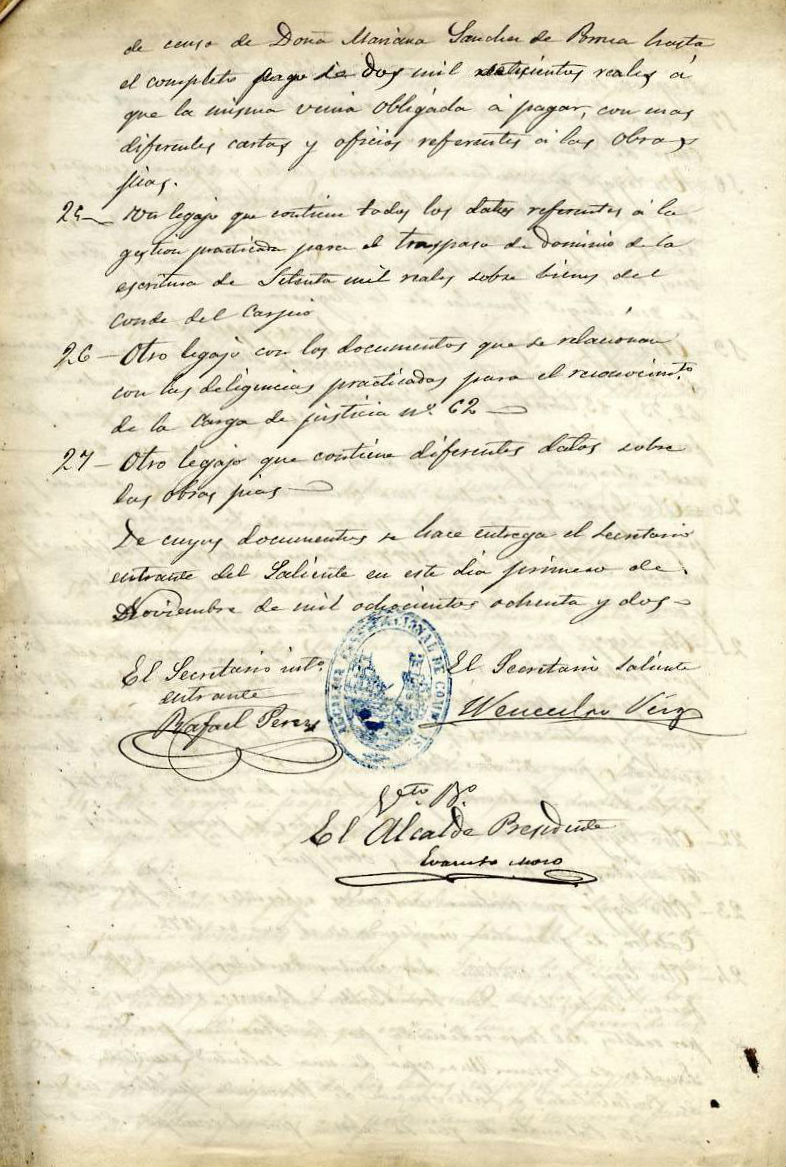 de censo de Doña Mariana Sanchez de hasta
el completo pago de dos mil setecientos reales á
que la misma venia obligada á pagar, con mas
diferentes cartas y oficios referentes á las Obras
pias.
25 legajo que contiene todos los datos referentes á la
gestion practicada para el traspaso de dominio de la
escritura de Setenta mil reales sobre bienes del
Conde del Carpio
26 - Otro legajo con los documentos que se relacionan
con las deligencias practicadas para el reconocimto.
de la Carga de justicia nº 62
27 - Otro legajo que contiene diferentes datos sobre
las obras pias
De cuyos documentos se hace entrega el Secretario
entrante del Saliente en este dia primero de
Noviembre de mil ochocientos ochenta y dos
El Secretario intº
entrante
Rafael Perez
El Secretario saliente
Wenceslao
Vto Bo
El Alcalde Presidente
Evaristo Moro